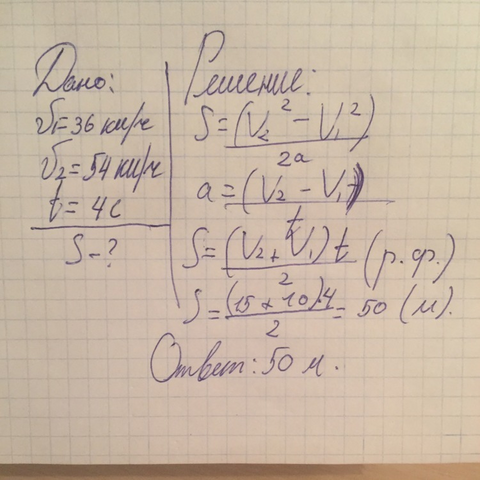 Дано:
V₁=36 км/ч
V₂=54 км/ч
t=4с
S-?
Решение:
S=(V₂²-V₁²)/2a
a=(V₂-V₁)/t
S=(V₂+V₁)t/2 (р.ф.)
S=(15+10)·4/2=50 (м).
Ответ: 50 м.